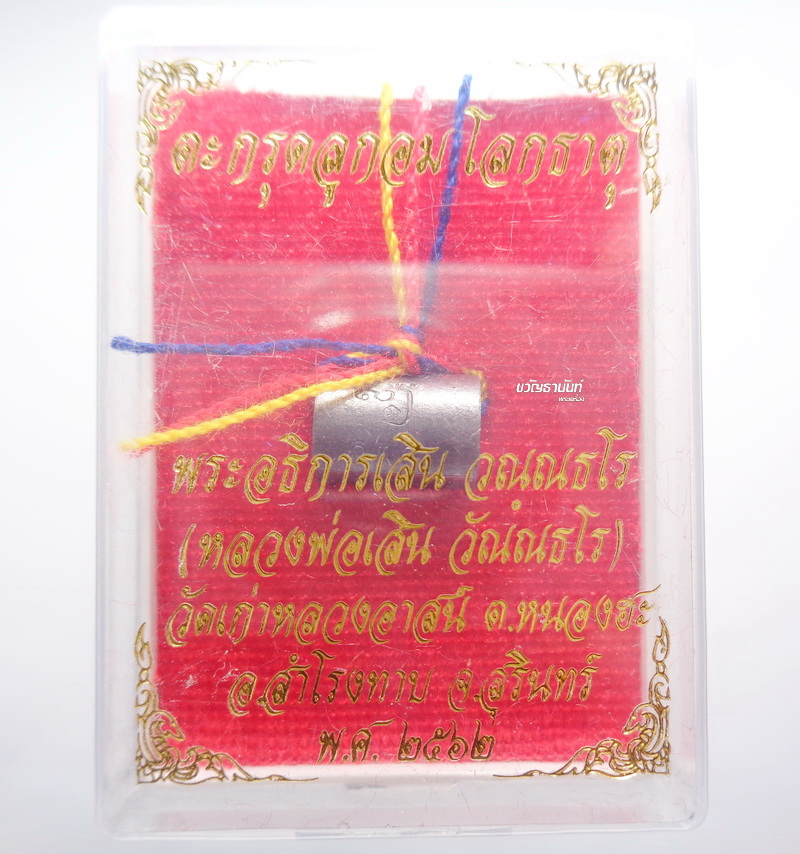 ตะกรุดลูกอมโลกธาตุ
ขวัญธานันท์
พระเครื่อง
พระอธิการเสิน วณฺณธโร
(หลวงพ่อเสิน วัณฺณธโร)
วัดเก่าหลวงอาสน์ ต.หนองฮะ
อ.สำโรงทาบ จ.สุรินทร์
พ.ศ. ๒๕๖๒